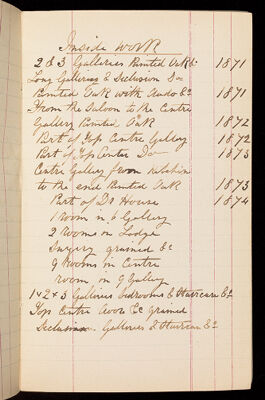 Inside Work
2 & 3 Galleries Painted Oak &c 1871
Long Galleries & Seclusion Do
Painted Oak with Audo &c 1871
From the Saloon to the Centre
Gallery Painted Oak 1872
Part of Top Centre Gallery 1872
Part of Top Center Do 1873
Centre Gallery from
to the end Painted Oak 1873
Part of Dr House 1874
1 Room in 6 Gallery
2 Rooms on Lodge
Surgery grained &c
9 Rooms in Centre
room in 9 Gallery
1 & 2 & 3 Galleries bedrooms & Staircase &c
Top Centre doors &c grained
Seclusion Galleries & Staircase &c